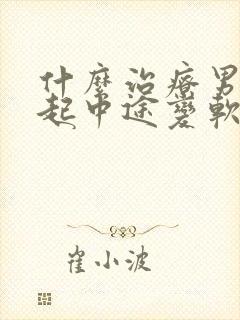 什麼治療男
起中途變軟
崔小波